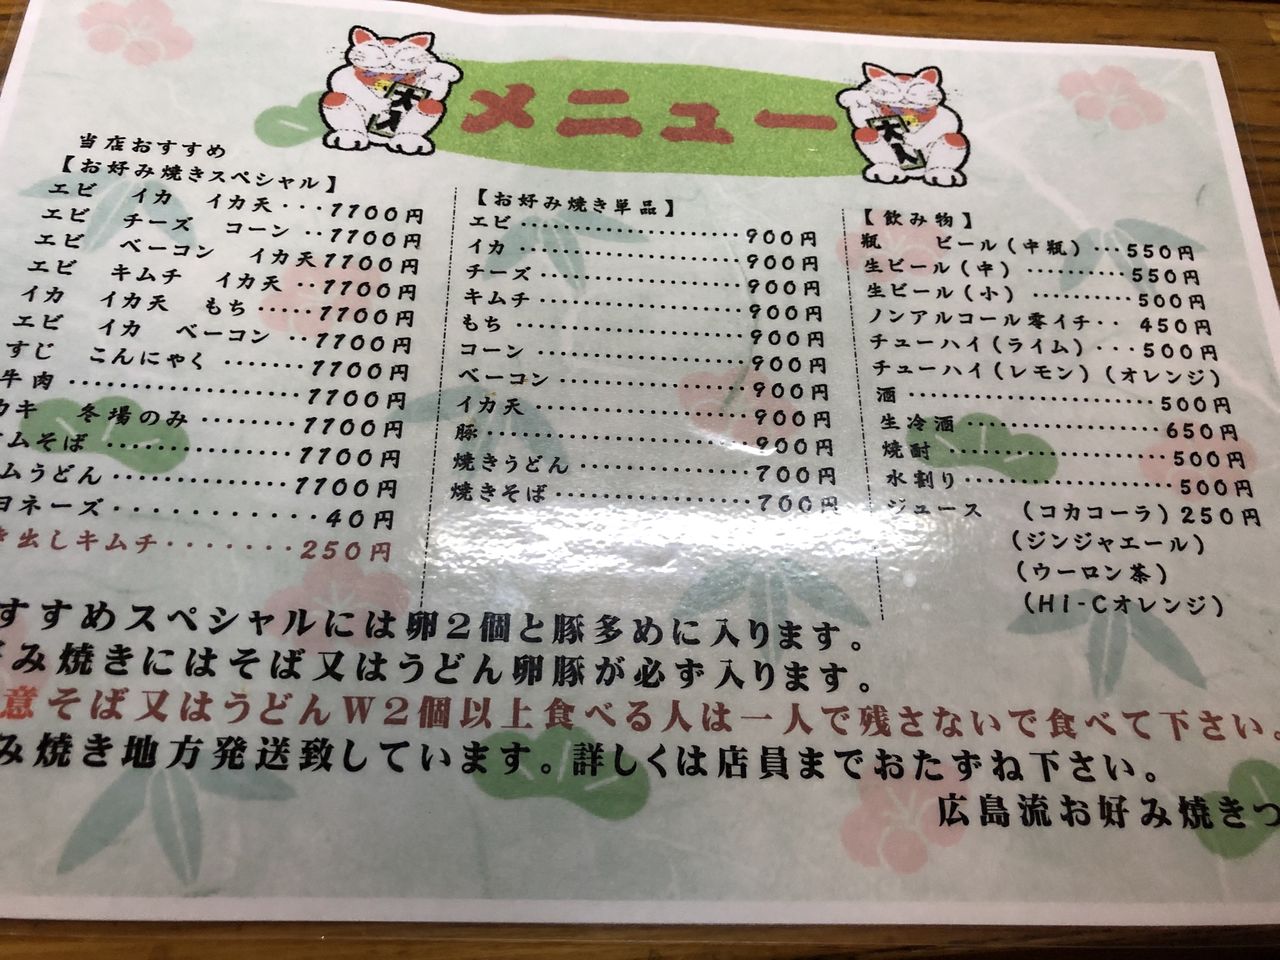 メニュー
大入
大入
当店おすすめ
【お好み焼きスペシャル】
エビ イカ イカ天・・・1100円
エビ チーズ コーン・・1100円
エビ ベーコン イカ天1100円
エビ キムチ イカ天・・1100円
イカ イカ天 もち・・・・・1100円
エビ イカ ベーコン・・1100円
すじ こんにゃく・・・・・・・1100円
牛肉・・・・・・・・・・・・・・・・・1100円
カキ 冬場のみ・・・・・・・・1100円
ムそば・・・・・・・・・・・・1100円
ムうどん・・・・・・・・・・・・1100円
ヨネーズ・・・・・・・・・・・・40円
き出しキムチ・・・・・・・250円
【お好み焼き単品】
エビ・・・・・・・・・・・・・・・・・・・900円
イカ・・・・・・・・・・・・・・・・・・・900円
チーズ・・・・・・・・・・・・・・・・・900円
キムチ・・・・・・・・・・・・・・・・・900円
もち・・・・・・・・・・・・・・・・・・・900円
コーン・・・・・・・・・・・・・・・・・900円
ベーコン・・・・・・・・・・・・・・・900円
イカ天・・・・・・・・・・・・・・・・・900円
豚・・・・・・・・・・・・・・・・・・・・・900円
焼きうどん・・・・・・・・・・・・・700円
焼きそば・・・・・・・・・・・・・・・700円
【飲み物】
瓶 ビール(中瓶)・・・550円
生ビール(中)・・・・・・・・・・550円
生ビール(小)・・・・・・・・・・500円
ノンアルコール零イチ・・450円
チューハイ(ライム)・・・500円
チューハイ(レモン)(オレンジ)
酒・・・・・・・・・・・・・・・・・・・・500円
生冷酒・・・・・・・・・・・・・・・・650円
焼酎・・・・・・・・・・・・・・・・・・500円
水割り・・・・・・・・・・・・・・・・500円
ジュース (コカコーラ)250円
(ジンジャエール)
(ウーロン茶)
(Hi-Cオレンジ)
すすめスペシャルには卵2個と豚多めに入ります。
好み焼きにはそば又はうどん卵豚が必ず入ります。
意そば又はうどんW2個以上食べる人は一人で残さないで食べて下さい。
み焼き地方発送致しています。詳しくは店員までおたずね下さい。
広島流お好み焼きつ